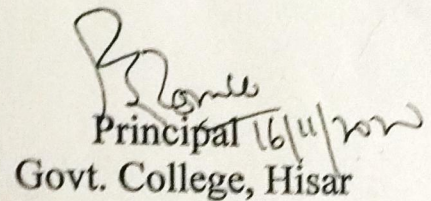 Principal 16/11/2020
Govt. College, Hisar